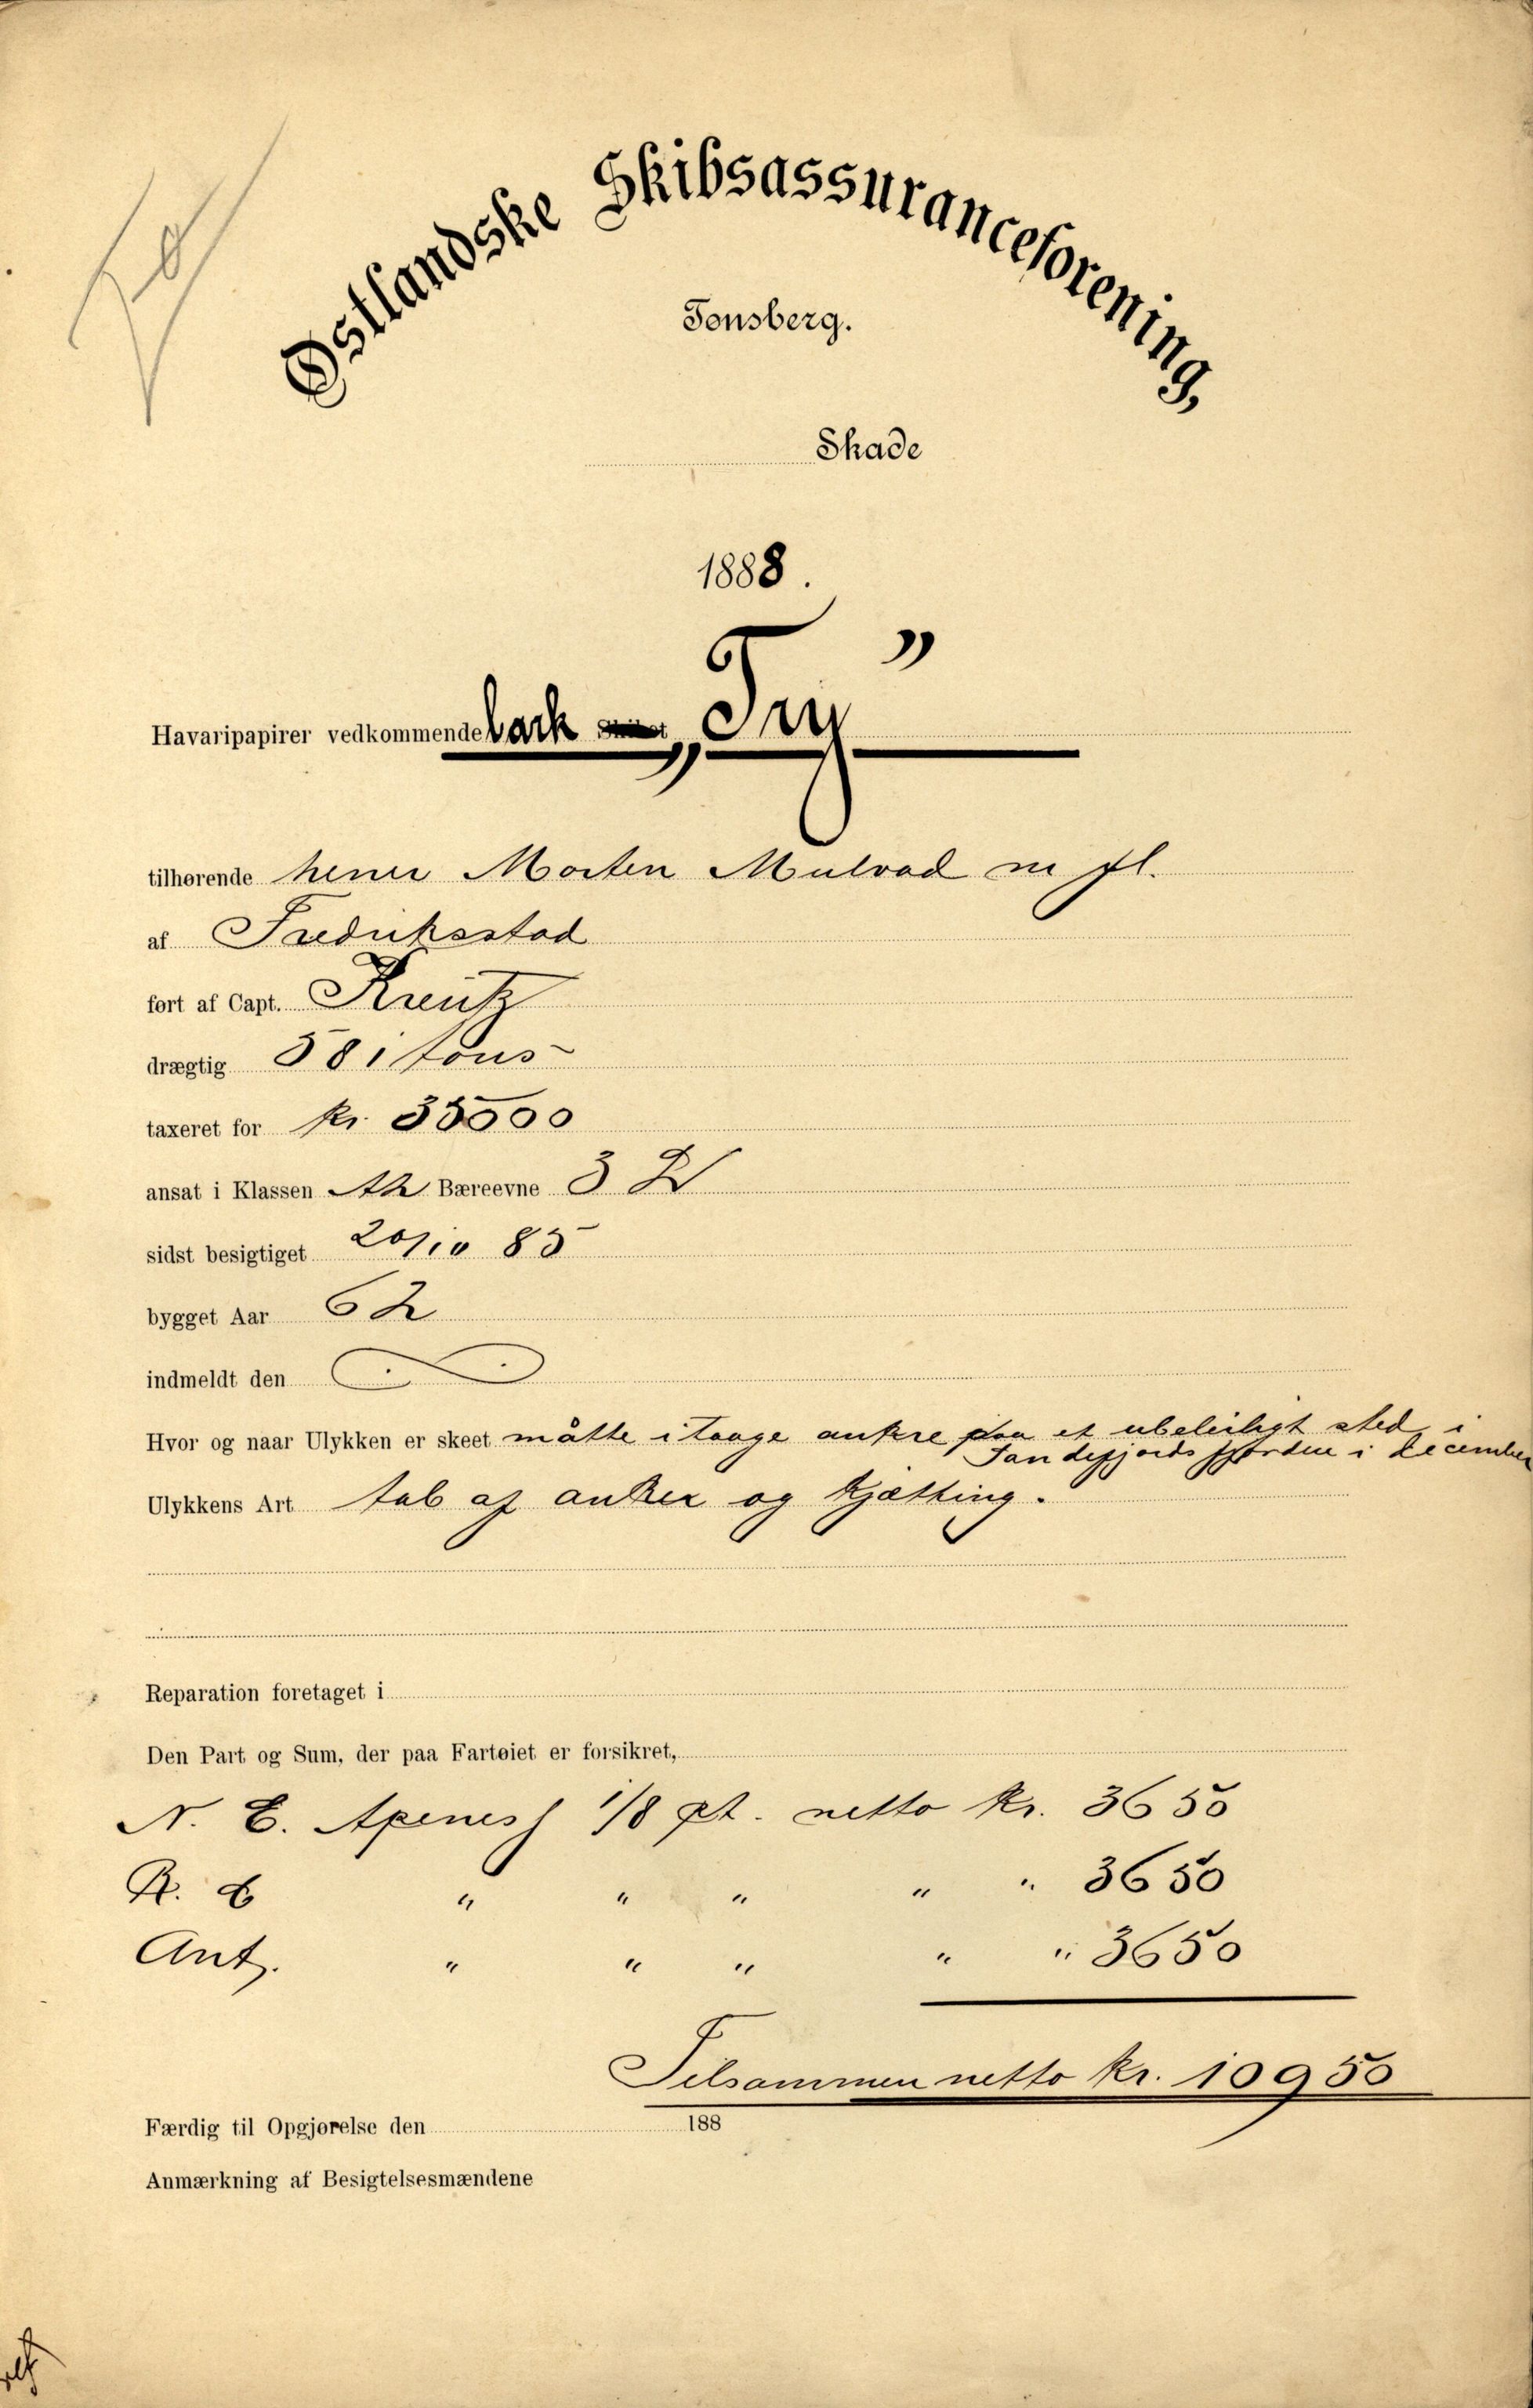 Østlandske Skibsassuranceforening,
Tønsberg.
Skade
1888.
Havaripapirer vedkommende bark „Try”
tilhørende herrer Morten Mulvad m fl.
af Fredriksstad
ført af Capt. Kreutz
drægtig 581 tons
taxeret for kr. 35000
ansat i Klassen A2 Bæreevne 3 W
sidst besigtiget 20/10 85
bygget Aar 62
indmeldt den
Hvor og naar Ulykken er skeet måtte i taage ankre paa et ubeleiligt sted i
Sandefjordsfjorden i december
Ulykkens Art tab af anker og kjætting.
Reparation foretaget i
Den Part og Sum, der paa Fartøiet er forsikret,
N. E. Apenes 1/8 pt. netto kr. 3650
R. E " " " " " 3650
Ant. " " " " " 3650
Tilsammen netto kr. 10950
Færdig til Opgjørelse den 188
Anmærkning af Besigtelsesmændene